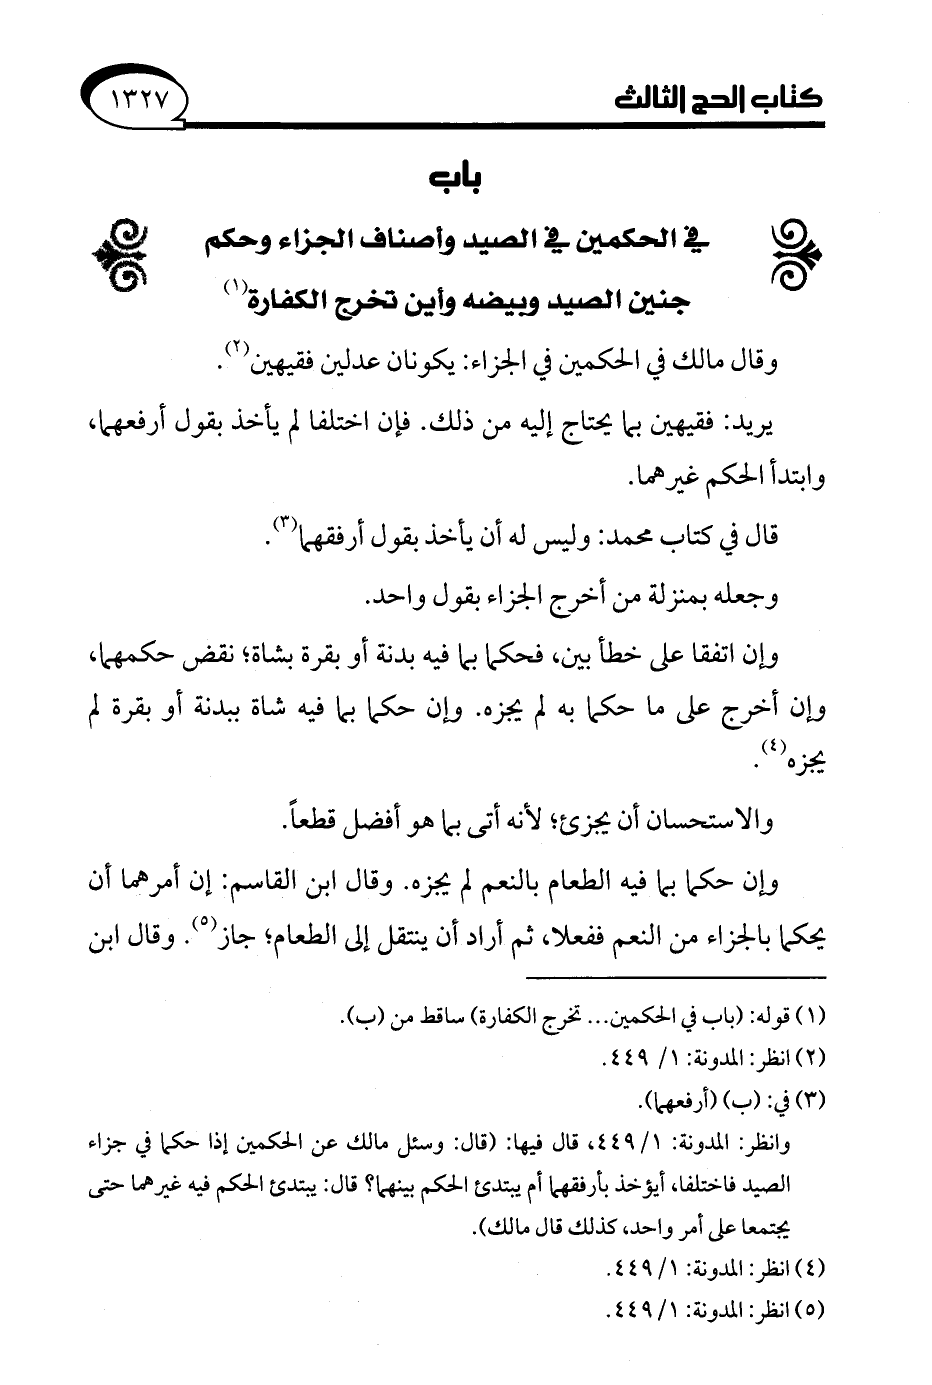 كتاب الحج الثالث
١٣٢٧
باب
في الحكمين في الصيد وأصناف الجزاء وحكم
جنين الصيد وبيضه وأين تخرج الكفارة(١)
وقال مالك في الحكمين في الجزاء: يكونان عدلين فقيهين(٢).
يريد: فقيهين بما يحتاج إليه من ذلك. فإن اختلفا لم يأخذ بقول أرفعهما،
وابتدأ الحكم غيرهما.
قال في كتاب محمد: وليس له أن يأخذ بقول أرفقهما(٣).
وجعله بمنزلة من أخرج الجزاء بقول واحد.
وإن اتفقا على خطأ بين، فحكما بما فيه بدنة أو بقرة بشاة؛ نقض حكمهما،
وإن أخرج على ما حكما به لم يجزه. وإن حكما بما فيه شاة ببدنة أو بقرة لم
يجزه(٤).
والاستحسان أن يجزئ؛ لأنه أتى بما هو أفضل قطعاً.
وإن حكما بما فيه الطعام بالنعم لم يجزه. وقال ابن القاسم: إن أمرهما أن
يحكما بالجزاء من النعم ففعلا، ثم أراد أن ينتقل إلى الطعام؛ جاز(٥). وقال ابن
(١) قوله: (باب في الحكمين... تخرج الكفارة) ساقط من (ب).
(٢) انظر: المدونة: ١/ ٤٤٩.
(٣) في: (ب) (أرفعهما).
وانظر: المدونة: ١/ ٤٤٩، قال فيها: (قال: وسئل مالك عن الحكمين إذا حكما في جزاء
الصيد فاختلفا، أيؤخذ بأرفقهما أم يبتدئ الحكم بينهما؟ قال: يبتدئ الحكم فيه غيرهما حتى
يجتمعا على أمر واحد، كذلك قال مالك).
(٤) انظر: المدونة: ١/ ٤٤٩.
(٥) انظر: المدونة: ١/ ٤٤٩.